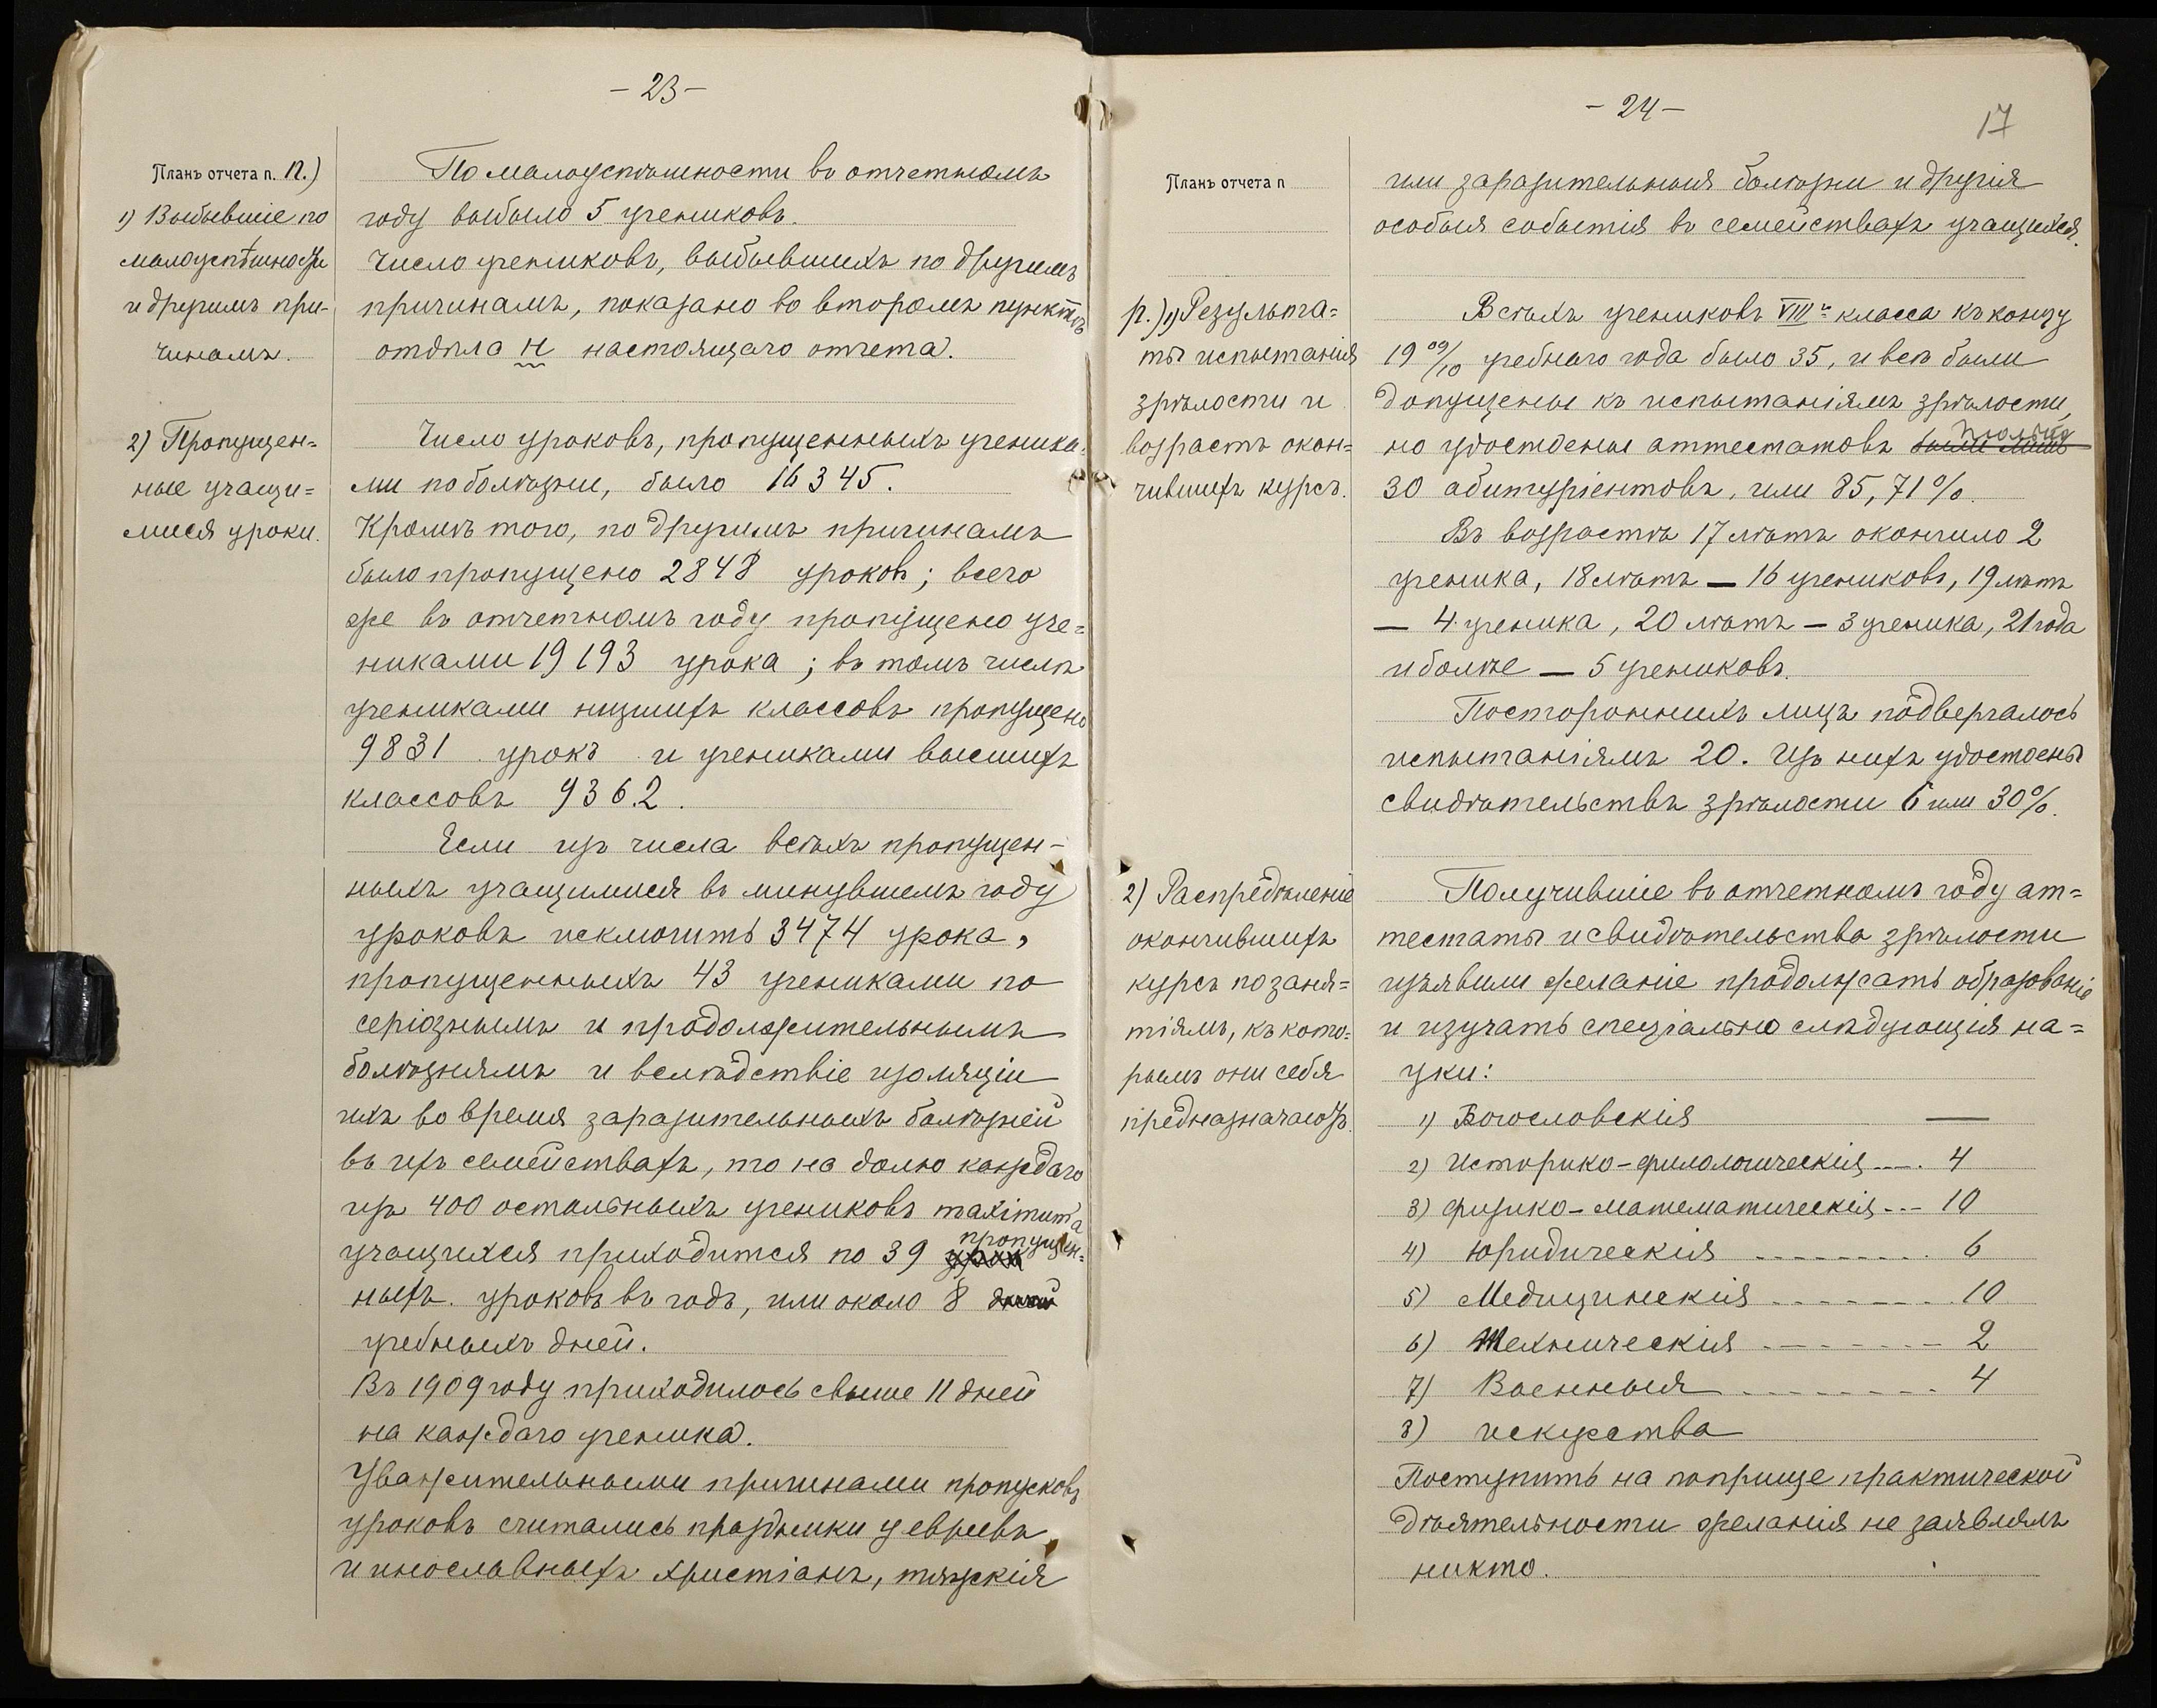 - 23 -
Планъ отчета п. П.)
1) Выбывшіе по
малоуспѣшности
и другимъ при-
чинамъ.
По малоуспѣшности въ отчетномъ
году выбыло 5 учениковъ.
Число учениковъ, выбывшихъ по другимъ
причинамъ, показано во второмъ пунктѣ
отдѣла Н настоящаго отчета.
2) Пропущен=
ные учащи=
мися уроки.
Число уроковъ, пропущенныхъ ученика=
ми по болѣзни, было 16345.
Кромѣ того, по другимъ причинамъ
было пропущено 2848 уроковъ; всего
же въ отчетномъ году пропущено уче=
никами 19193 урока; въ томъ числѣ
учениками низшихъ классовъ пропущено
9831 урокъ и учениками высшихъ
классовъ 9362.
Если изъ числа всѣхъ пропущен-
ныхъ учащимися въ минувшемъ году
уроковъ исключить 3474 урока,
пропущенныхъ 43 учениками по
серіознымъ и продолжительнымъ
болѣзнямъ и вслѣдствіе изоляціи
ихъ во время заразительныхъ болѣзней
въ ихъ семействахъ, то на долю каждаго
изъ 400 остальныхъ учениковъ maximum'а
учащихся приходится по 39 пропущен-
ныхъ уроковъ въ годъ, или около 8
учебныхъ дней.
Въ 1909 году приходилось свыше 11 дней
на каждаго ученика.
Уважительными причинами пропусковъ
уроковъ считались праздники у евреевъ
и инославныхъ христіанъ, тяжкія
- 24 -
17
Планъ отчета п
или заразительныя болѣзни и другія
особыя событія въ семействахъ учащихся.
р.) 1) Результа=
ты испытанія
зрѣлости и
возрастъ окон=
чившихъ курсъ.
Всѣхъ учениковъ VIII го класса къ концу
19 09/10 учебнаго года было 35, и всѣ были
допущены къ испытаніямъ зрѣлости,
но удостоены аттестатовъ только
30 абитуріентовъ, или 85,71%.
Въ возрастѣ 17 лѣтъ окончило 2
ученика, 18 лѣтъ — 16 учениковъ, 19 лѣтъ
— 4 ученика, 20 лѣтъ — 3 ученика, 21 года
и болѣе — 5 учениковъ.
Постороннихъ лицъ подвергалось
испытаніямъ 20. Изъ нихъ удостоены
свидѣтельствъ зрѣлости 6 или 30%.
2) Распредѣленіе
окончившихъ
курсъ по заня=
тіямъ, къ кото=
рымъ они себя
предназначаютъ.
Получившіе въ отчетномъ году ат=
тестаты и свидѣтельства зрѣлости
изъявили желаніе продолжать образованіе
и изучать спеціально слѣдующія на=
уки:
1) Богословскія —
2) Историко-филологическія ---. 4
3) Физико-математическія --- 10
4) Юридическія -------- 6
5) Медицинскія -------- 10
6) Техническія -------- 2
7) Военныя -------- 4
8) искусства
Поступить на поприще практической
дѣятельности желанія не заявлялъ
никто.